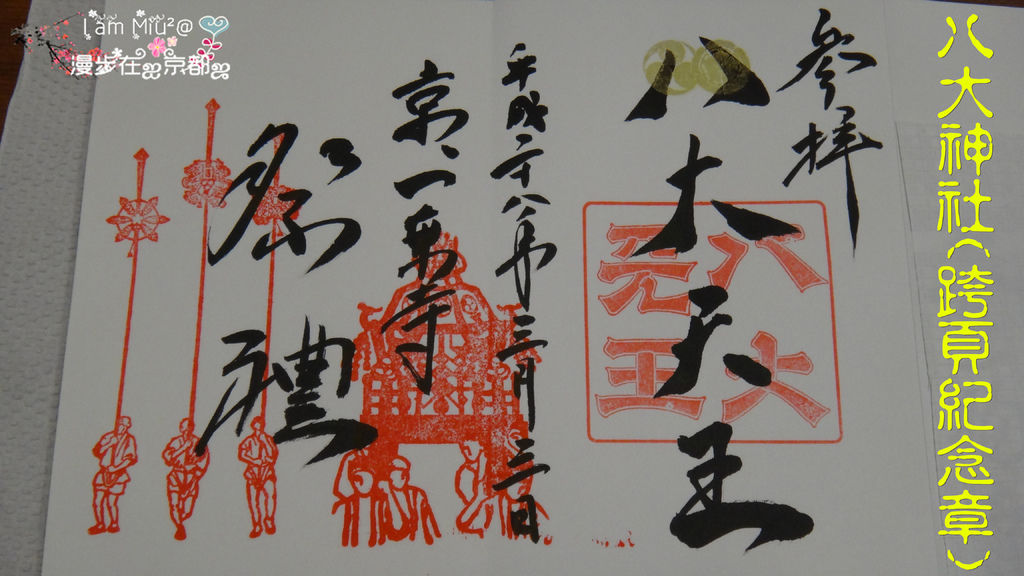 Lam Miu²@
漫步在ஐ京都ஐ
八大神社(跨頁紀念章)
参拝
八大天王
八大天王
平成二十八年三月三日
京、一乗寺
祭禮